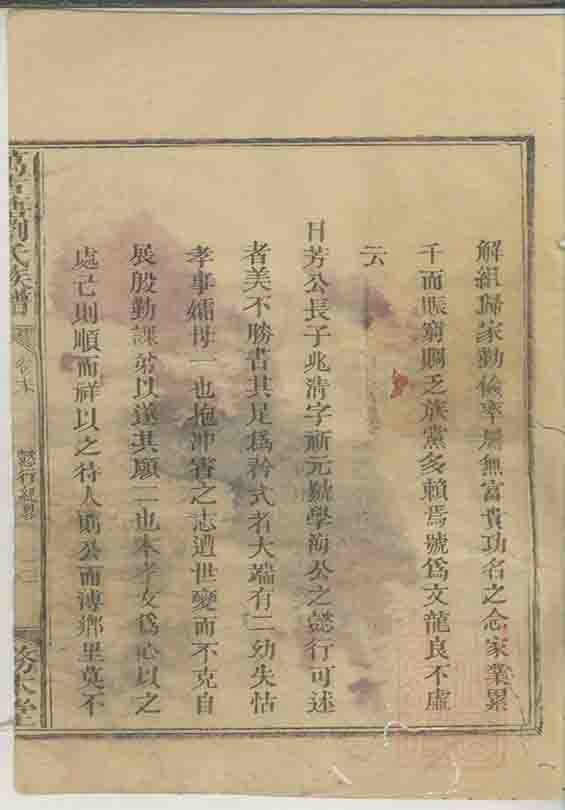 解組歸家勤儉率屬無富貴功名之念家業累
千而賑窮賙乏族黨多賴焉號爲文龍良不虛
云
日芳公長子兆清字新元號學海公之懿行可述
者美不勝書其足爲矜式者大端有二幼失怙
孝事孀母一也抱沖霄之志遭世變而不克自
展殷勤課弟以遂其願二也本孝友爲心以之
處己則順而祥以之待人則公而溥鄉里莫不
劉氏族譜
卷末
懿行紀畧
務本堂